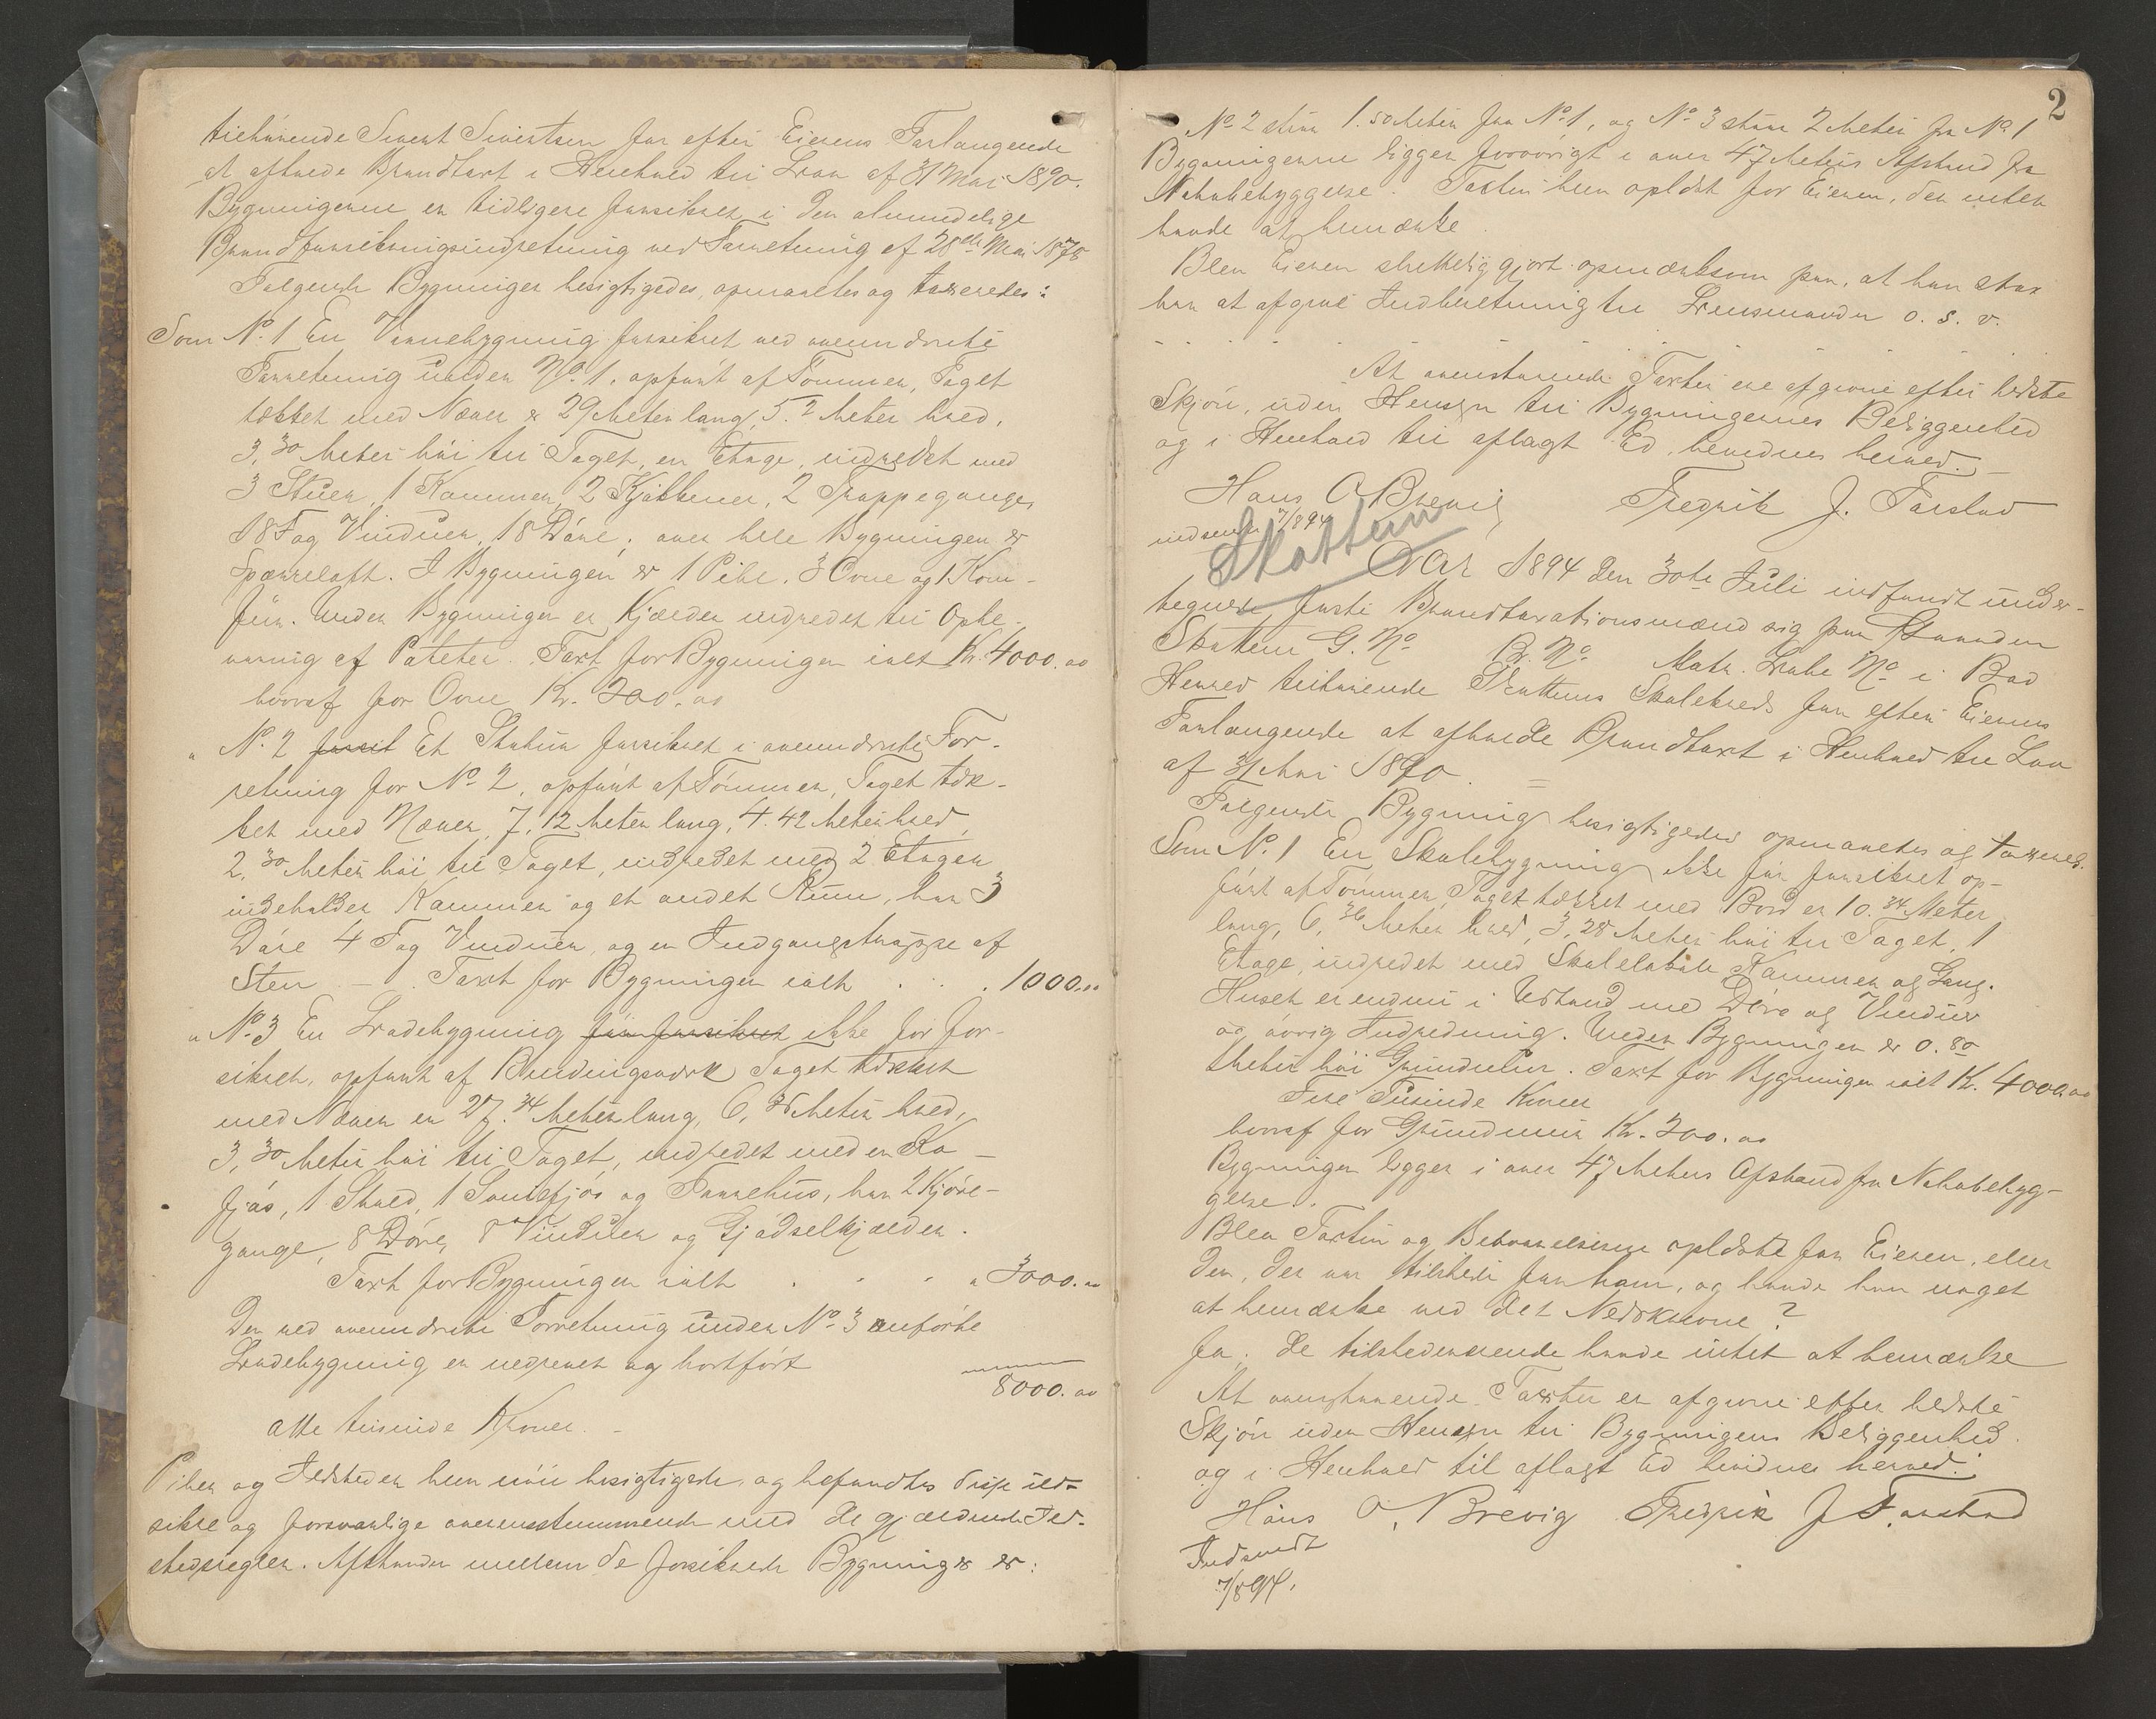 tilhørende Sivert Sivertsen for efter Eierens Forlangende
at afholde Brandtaxt i Henhold til Lov af 31 Mai 1890.
Bygningerne er tidligere forsikret i den almindelige
Brandforsikringsindretning ved Forretning af 28de Mai 1878
Følgende Bygninger besigtigedes, opmaaltes og taxeredes:
Som No. 1 En Vaanebygning forsikret ved ovennævnte
Forretning under No. 1, opført af Tømmer, Taget
tækket med Næver er 29 Meter lang, 5.2 Meter bred,
3,30 Meter høi til Taget, en Etage, indredet med
3 Stuer, 1 Kammer, 2 Kjøkkener, 2 Trappegange,
18 Fag Vinduer, 18 Døre; over hele Bygningen er
Sparreloft. I Bygningen er 1 Pibe, 3 Ovne og 1 Kom-
für. Under Bygningen er Kjælder indredet til Opbe-
varing af Poteter. Taxt for Bygningen ialt Kr. 4000.00
hvoraf for Ovne Kr. 200.00
" No. 2 forsik Et Stabur forsikret i ovennævnte For-
retning for No. 2, opført af Tømmer, Taget tæk-
ket med Næver, 7,12 Meter lang, 4.42 Meter bred,
2,30 Meter høi til Taget, indredet med 2 Etager
indeholder Kammer og et andet Rum, har 3
Døre 4 Fag Vinduer, og en Indgangstrappe af
Sten – . Taxt for Bygningen ialt . . . 1000.00
" No. 3 En Ladebygning før forsikret ikke før for-
sikret, opført af Bindingsværk Taget tækket
med Næver er 27.34 Meter lang, 6, Meter bred,
3,30 Meter høi til Taget, indredet med en Ko-
fjøs, 1 Stald, 1 Souefjøs og Foorehus, har 2 Kjøre-
gange, 8 Døre, 8 Vinduer og Gjødselkjælder.
Taxt for Bygningen ialt . . . " 3000.00
Den ved ovennævnte Forretning under No. 3 anførte
Ladebygning er nedrevet og bortført
8000.00
otte tusinde Kroner. –
Piben og Ildsteder blev nøie besigtigede, og befandtes disse ild-
sikre og forsvarlige overensstemmende med de gjældende Ild-
stedsregler. Afstanden mellem de forsikrede Bygninger er:
2
No. 2 staar 1.50 Meter fra No. 1, og No. 3 staar 2 Meter fra No. 1
Bygningerne ligger forøvrigt i over 47 Meters Afstand fra
Nabobebyggelse. Taxten blev oplæst for Eieren, der intet
havde at bemærke.
Blev Eieren skriftlig gjort opmærksom paa, at han skal
han at afgive Indberetning til Lensmanden o. s. v.
At ovenstaaende Taxter ere afgivne efter bedste
Skjøn, uden Hensyn til Bygningernes Beliggenhed
og i Henhold til aflagt Ed, bevidnes herved. –
Hans O Brevig Fredrik J. Farstad
indsendt 7/8 94
Skottem
Aar 1894 den 30te Juli indfandt under-
tegnede faste Brandtaxationsmænd sig paa Gaarden
Skottem G. No. Br. No. Matr. Løbe No. i Bod
Herred tilhørende Skottems Skolekreds for efter Eierens
Forlangende at afholde Brandtaxt i Henhold til Lov
af 31 Mai 1890.
Følgende Bygning besigtigedes opmaaltes og taxered.
Som No. 1 En Skolebygning ikke før forsikret op-
ført af Tømmer, Taget tækket med Bord er 10.34 Meter
lang, 6,36 Meter bred, 3,28 Meter høi til Taget, 1
Etage, indredet med Skolelokale Kammer og Gang.
Huset er endnu i Ustand med Døre og Vinduer
og øvrig Indredning. Under Bygningen er 0.80
Meter høi Grundmur. Taxt for Bygningen ialt Kr. 4000.00
Fire Tusinde Kroner
hvoraf for Grundmur Kr. 200.00
Bygningen ligger i over 47 Meters Afstand fra Nabobebyg-
gelse.
Blev Taxten og Beskrivelserne oplæste for Eieren, eller
den, der var tilstede for ham, og havde han noget
at bemærke ved det Nedskrevne?
Ja; de tilstedeværende havde intet at bemærke
At ovenstaaende Taxter er afgivne efter bedste
Skjøn uden Hensyn til Bygningens Beliggenhed
og i Henhold til aflagt Ed bevidnes herved.
Hans O. Brevig Fredrik J Farstad
Indsendt
7/8 94.